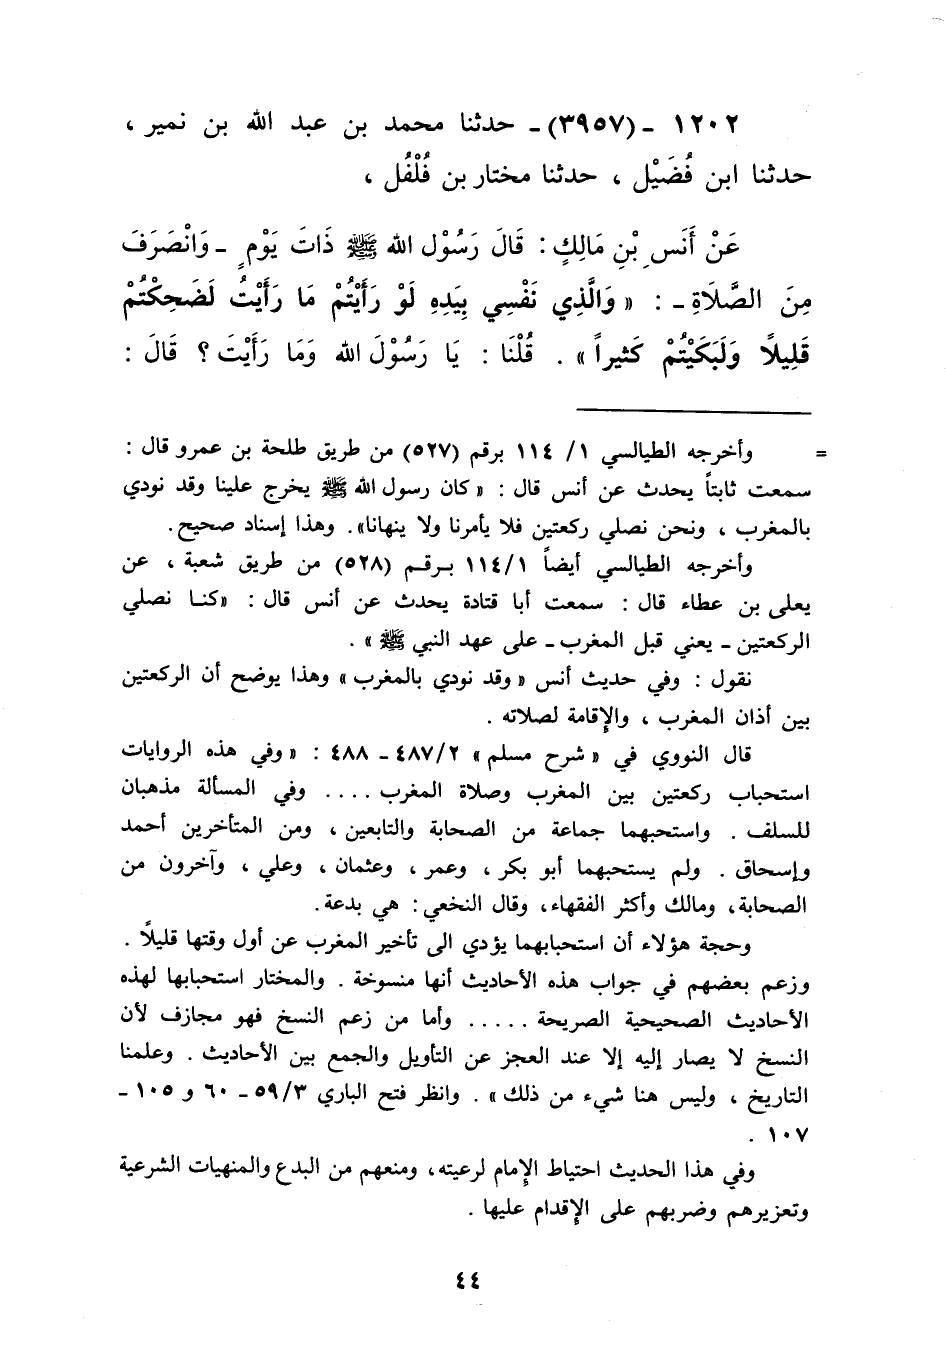 ١٢٠٢ ـ (٣٩٥٧) ـ حدثنا محمد بن عبد الله بن نمير ،
حدثنا ابن فُضَيْل ، حدثنا مختار بن فُلْفُل ،
عَنْ أَنَسِ بْنِ مَالِكٍ : قَالَ رَسُوْل الله ﷺ ذَاتَ يَوْمٍ ـ وَانْصَرَفَ
مِنَ الصَّلَاةِ ـ : « وَالَّذِي نَفْسِي بِيَدِهِ لَوْ رَأَيْتُمْ مَا رَأَيْتُ لَضَحِكْتُمْ
قَلِيلًا وَلَبَكَيْتُمْ كَثيراً » . قُلْنَا : يَا رَسُوْلَ الله وَمَا رَأَيْتَ ؟ قَالَ :
= وأخرجه الطيالسي ١/ ١١٤ برقم (٥٢٧) من طريق طلحة بن عمرو قال :
سمعت ثابتاً يحدث عن أنس قال : « كان رسول الله ﷺ يخرج علينا وقد نودي
بالمغرب ، ونحن نصلي ركعتين فلا يأمرنا ولا ينهانا». وهذا إسناد صحيح.
وأخرجه الطيالسي أيضاً ١/ ١١٤ برقم (٥٢٨) من طريق شعبة ، عن
يعلى بن عطاء قال : سمعت أبا قتادة يحدث عن أنس قال : «كنا نصلي
الركعتين ـ يعني قبل المغرب ـ على عهد النبي ﷺ » .
نقول : وفي حديث أنس « وقد نودي بالمغرب » وهذا يوضح أن الركعتين
بين أذان المغرب ، والإقامة لصلاته .
قال النووي في « شرح مسلم » ٢/ ٤٨٧ ـ ٤٨٨ : « وفي هذه الروايات
استحباب ركعتين بين المغرب وصلاة المغرب .... وفي المسألة مذهبان
للسلف . واستحبهما جماعة من الصحابة والتابعين ، ومن المتأخرين أحمد
وإسحاق . ولم يستحبهما أبو بكر ، وعمر ، وعثمان ، وعلي ، وآخرون من
الصحابة، ومالك وأكثر الفقهاء، وقال النخعي : هي بدعة.
وحجة هؤلاء أن استحبابهما يؤدي الى تأخير المغرب عن أول وقتها قليلاً .
وزعم بعضهم في جواب هذه الأحاديث أنها منسوخة . والمختار استحبابها لهذه
الأحاديث الصحيحية الصريحة ..... وأما من زعم النسخ فهو مجازف لأن
النسخ لا يصار إليه إلا عند العجز عن التأويل والجمع بين الأحاديث . وعلمنا
التاريخ ، وليس هنا شيء من ذلك » . وانظر فتح الباري ٣/ ٥٩ ـ ٦٠ و ١٠٥ ـ
١٠٧ .
وفي هذا الحديث احتياط الإمام لرعيته، ومنعهم من البدع والمنهيات الشرعية
وتعزيرهم وضربهم على الإقدام عليها .
٤٤